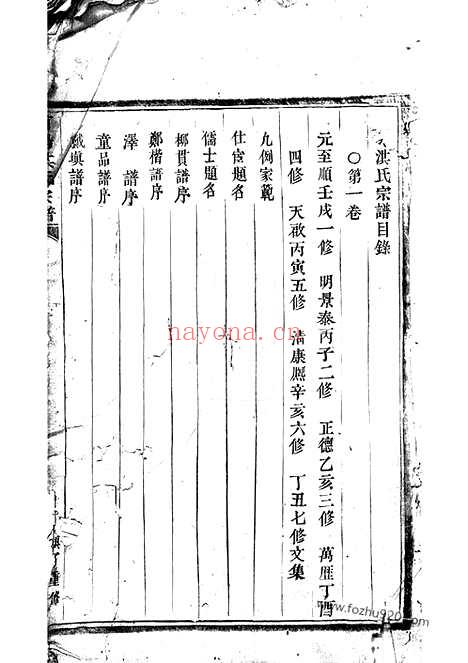 洪氏宗譜目錄
○第一卷
元至順壬戌一修 明景泰丙子二修 正德乙亥三修 萬歷丁酉
四修 天啟丙寅五修 清康熙辛亥六修 丁丑七修文集
凡例家範
仕宦題名
儒士題名
柳貫譜序
鄭楷譜序
澤譜序
童品譜序
譜序
宗譜
重修
nayona.cn
www.fozhu920.com